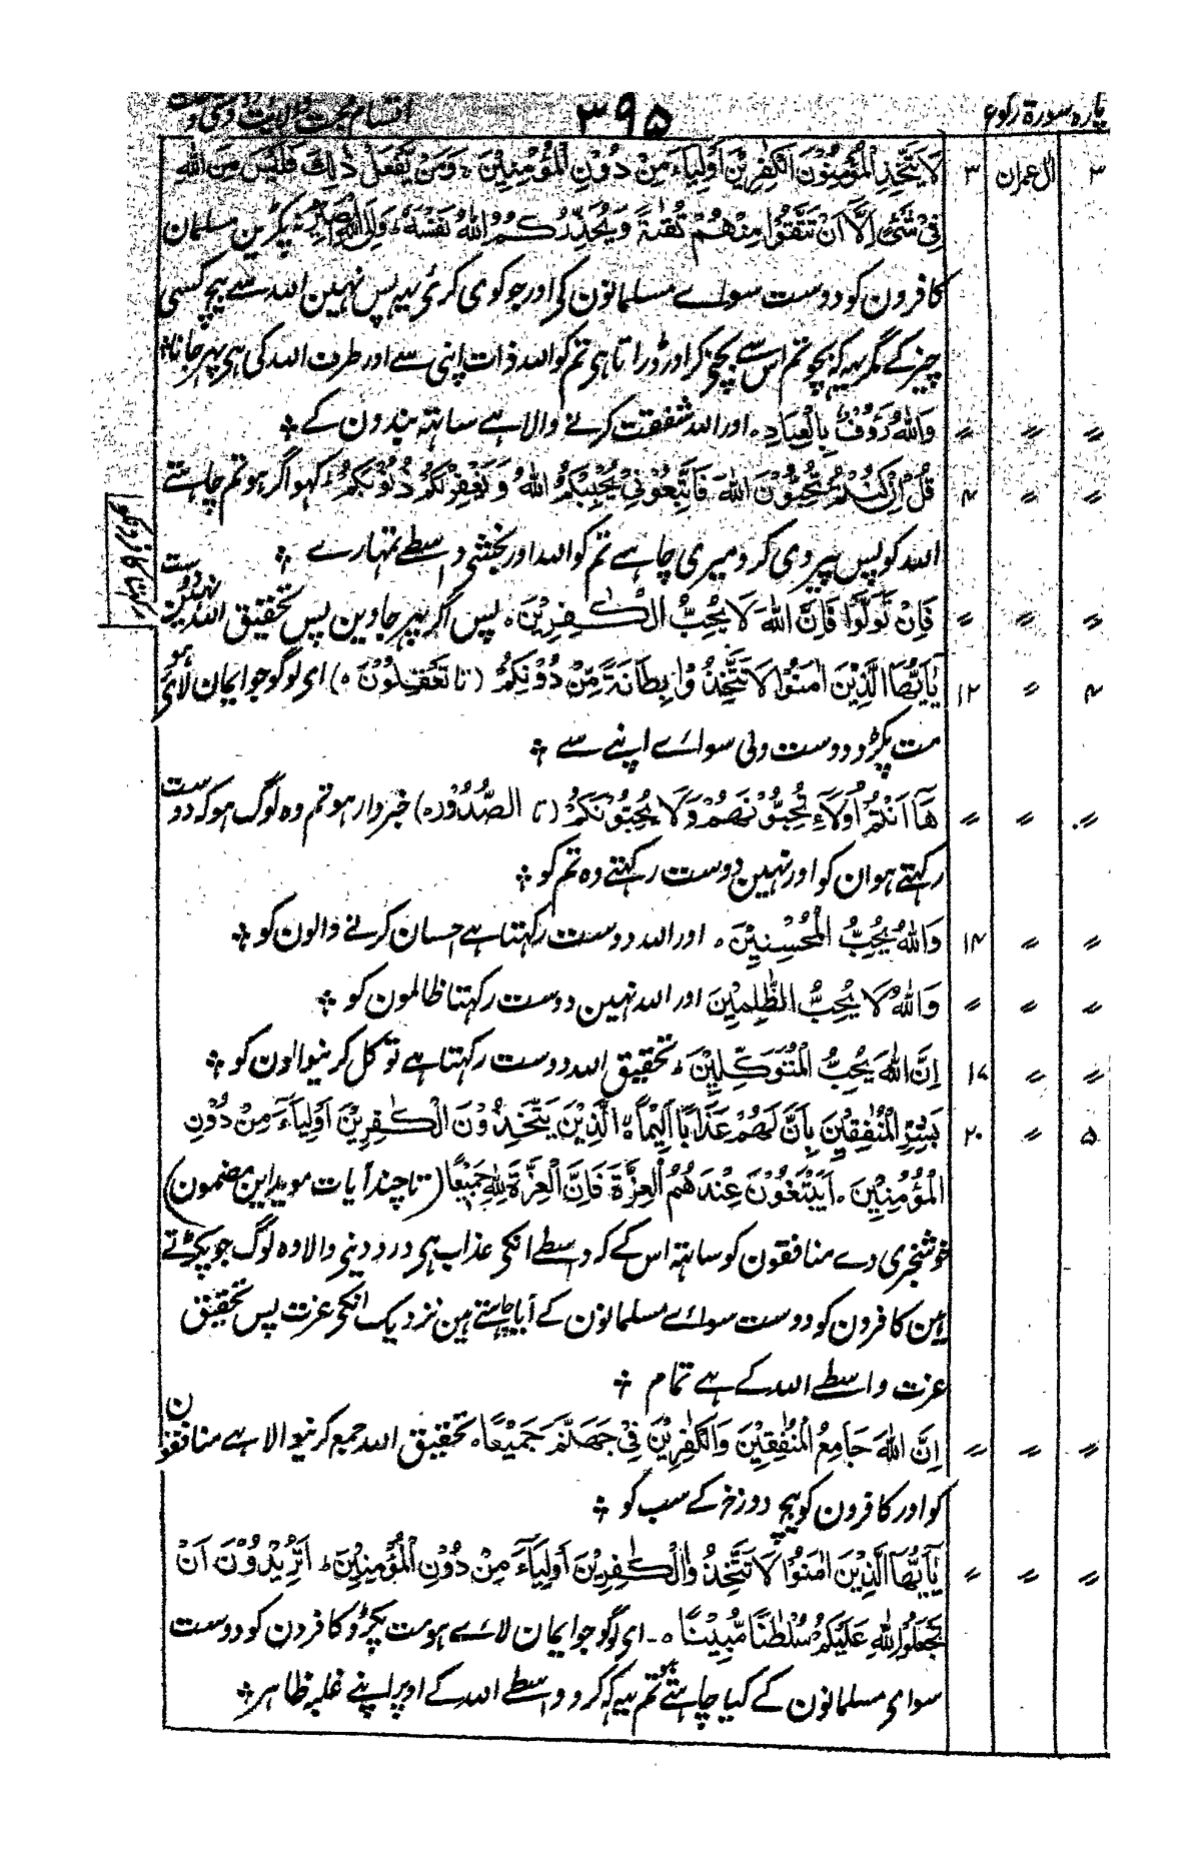 پارہ سورۃ رکوع ۳۹۵ اقسام محبت ولایت دوستی و
۳ اٰل عمران ۳ لَا یَتَّخِذِ الْمُؤْمِنُوْنَ الْکٰفِرِیْنَ اَوْلِیَآءَ مِنْ دُوْنِ الْمُؤْمِنِیْنَ ۚ وَمَنْ یَّفْعَلْ ذٰلِکَ فَلَیْسَ مِنَ اللّٰهِ
فِیْ شَیْءٍ اِلَّآ اَنْ تَتَّقُوْا مِنْهُمْ تُقٰىةً وَیُحَذِّرُکُمُ اللّٰهُ نَفْسَهٗ ؕ وَاِلَی اللّٰهِ الْمَصِیْرُ نہ پکڑین مسلمان
کافرون کو دوست سواے مسلمانون کی اور جو کوی کرئی یہ پس نہین اللہ سے بیچ کسی
چیز کے مگر یہہ کہ بچو تم اس سے بچکر اور ڈراتا ہی تم کو اللہ ذات اپنی سے اور طرف اللہ کی ہی پہر جانا ؞
〃 〃 〃 وَاللّٰهُ رَءُوْفٌۢ بِالْعِبَادِ ۰ اور اللہ شفقت کرنے والا ہے ساتہہ بندون کے ؞
〃 〃 ۴ قُلْ اِنْ کُنْتُمْ تُحِبُّوْنَ اللّٰهَ فَاتَّبِعُوْنِیْ یُحْبِبْکُمُ اللّٰهُ وَیَغْفِرْلَکُمْ ذُنُوْبَکُمْ ؕ کہو اگر ہو تم چاہتے
اللہ کو پس پیروی کرو میری چاہے تم کو اللہ اور بخشی واسطے تمہارے ؞
〃 〃 〃 فَاِنْ تَوَلَّوْا فَاِنَّ اللّٰهَ لَا یُحِبُّ الْکٰفِرِیْنَ ۰ پس اگر پہر جاوین پس تحقیق اللہ نہین دوست
۴ 〃 ۱۲ یٰٓاَیُّهَا الَّذِیْنَ اٰمَنُوْا لَا تَتَّخِذُوْا بِطَانَةً مِّنْ دُوْنِکُمْ (تا تَعْقِلُوْنَ ۰) ای لوگو جو ایمان لائے ہو
مت پکڑو دوست ولی سوائے اپنے سے ؞
〃 〃 〃 هٰٓاَنْتُمْ اُولَآءِ تُحِبُّوْنَهُمْ وَلَا یُحِبُّوْنَکُمْ (تا الصُّدُوْرِ ۰) خبردار ہو تم وہ لوگ ہو کہ دوست
رکہتے ہو ان کو اور نہین دوست رکہتے وہ تم کو ؞
〃 〃 ۱۴ وَاللّٰهُ یُحِبُّ الْمُحْسِنِیْنَ ۰ اور اللہ دوست رکہتا ہے احسان کرنے والون کو ؞
〃 〃 〃 وَاللّٰهُ لَا یُحِبُّ الظّٰلِمِیْنَ اور اللہ نہین دوست رکہتا ظالمون کو ؞
〃 〃 ۱۷ اِنَّ اللّٰهَ یُحِبُّ الْمُتَوَکِّلِیْنَ ؕ تحقیق اللہ دوست رکہتا ہے توکل کرنیوالون کو ؞
۵ 〃 ۲۰ بَشِّرِ الْمُنٰفِقِیْنَ بِاَنَّ لَهُمْ عَذَابًا اَلِیْمًا ۙ الَّذِیْنَ یَتَّخِذُوْنَ الْکٰفِرِیْنَ اَوْلِیَآءَ مِنْ دُوْنِ
الْمُؤْمِنِیْنَ ۰ اَیَبْتَغُوْنَ عِنْدَهُمُ الْعِزَّةَ فَاِنَّ الْعِزَّةَ لِلّٰهِ جَمِیْعًا (تا چند آیات موید این مضمون)
خوشخبری دے منافقون کو ساتہہ اس کے کہ واسطے انکی عذاب ہی درد دینی والا وہ لوگ جو پکڑتے
ہین کافرون کو دوست سوائے مسلمانون کے آیا چاہتے ہین نزدیک انکی عزت پس تحقیق
عزت واسطے اللہ کے ہے تمام ؞
〃 〃 〃 اِنَّ اللّٰهَ جَامِعُ الْمُنٰفِقِیْنَ وَالْکٰفِرِیْنَ فِیْ جَهَنَّمَ جَمِیْعًا ۰ تحقیق اللہ جمع کرنیوالا ہے منافقون
کو اور کافرون کو بیچ دوزخ کے سب کو ؞
〃 〃 〃 یٰٓاَیُّهَا الَّذِیْنَ اٰمَنُوْا لَا تَتَّخِذُوا الْکٰفِرِیْنَ اَوْلِیَآءَ مِنْ دُوْنِ الْمُؤْمِنِیْنَ ؕ اَتُرِیْدُوْنَ اَنْ
تَجْعَلُوْا لِلّٰهِ عَلَیْکُمْ سُلْطٰنًا مُّبِیْنًا ۰ ۔ ای لوگو جو ایمان لائے ہو مت پکڑو کافرون کو دوست
سوای مسلمانون کے کیا چاہتے ہو تم یہہ کہ کرو واسطے اللہ کے اوپر اپنے غلبہ ظاہر ؞